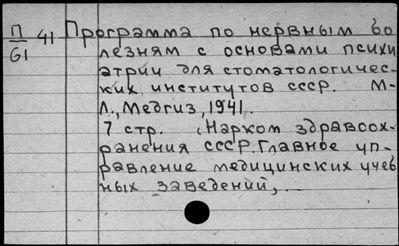 П/61 41 Программа по нервным бо
лезням с основами психи
атрии для стоматологичес-
ких институтов СССР. М-
Л., Медгиз, 1941.
7 стр. (Нарком здравоох-
ранения СССР. Главное уп-
равление медицинских учеб
ных заведений,..